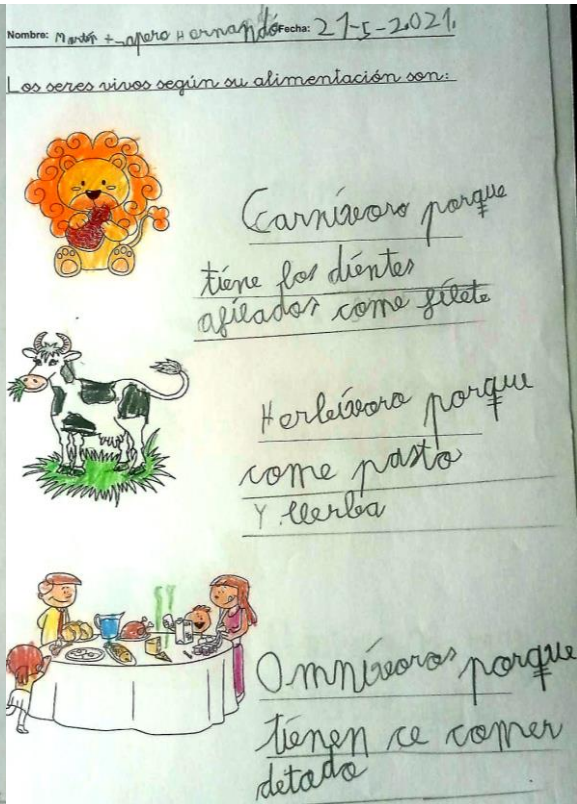 Nombre: Fecha: 21-5-2021.
Los seres vivos según su alimentación son:
Carnívoro porque
tiene los dientes
afilados come filete
Herbívoro porque
come pasto
Y llerba
Omnívoros porque
tienen ce comer
detodo